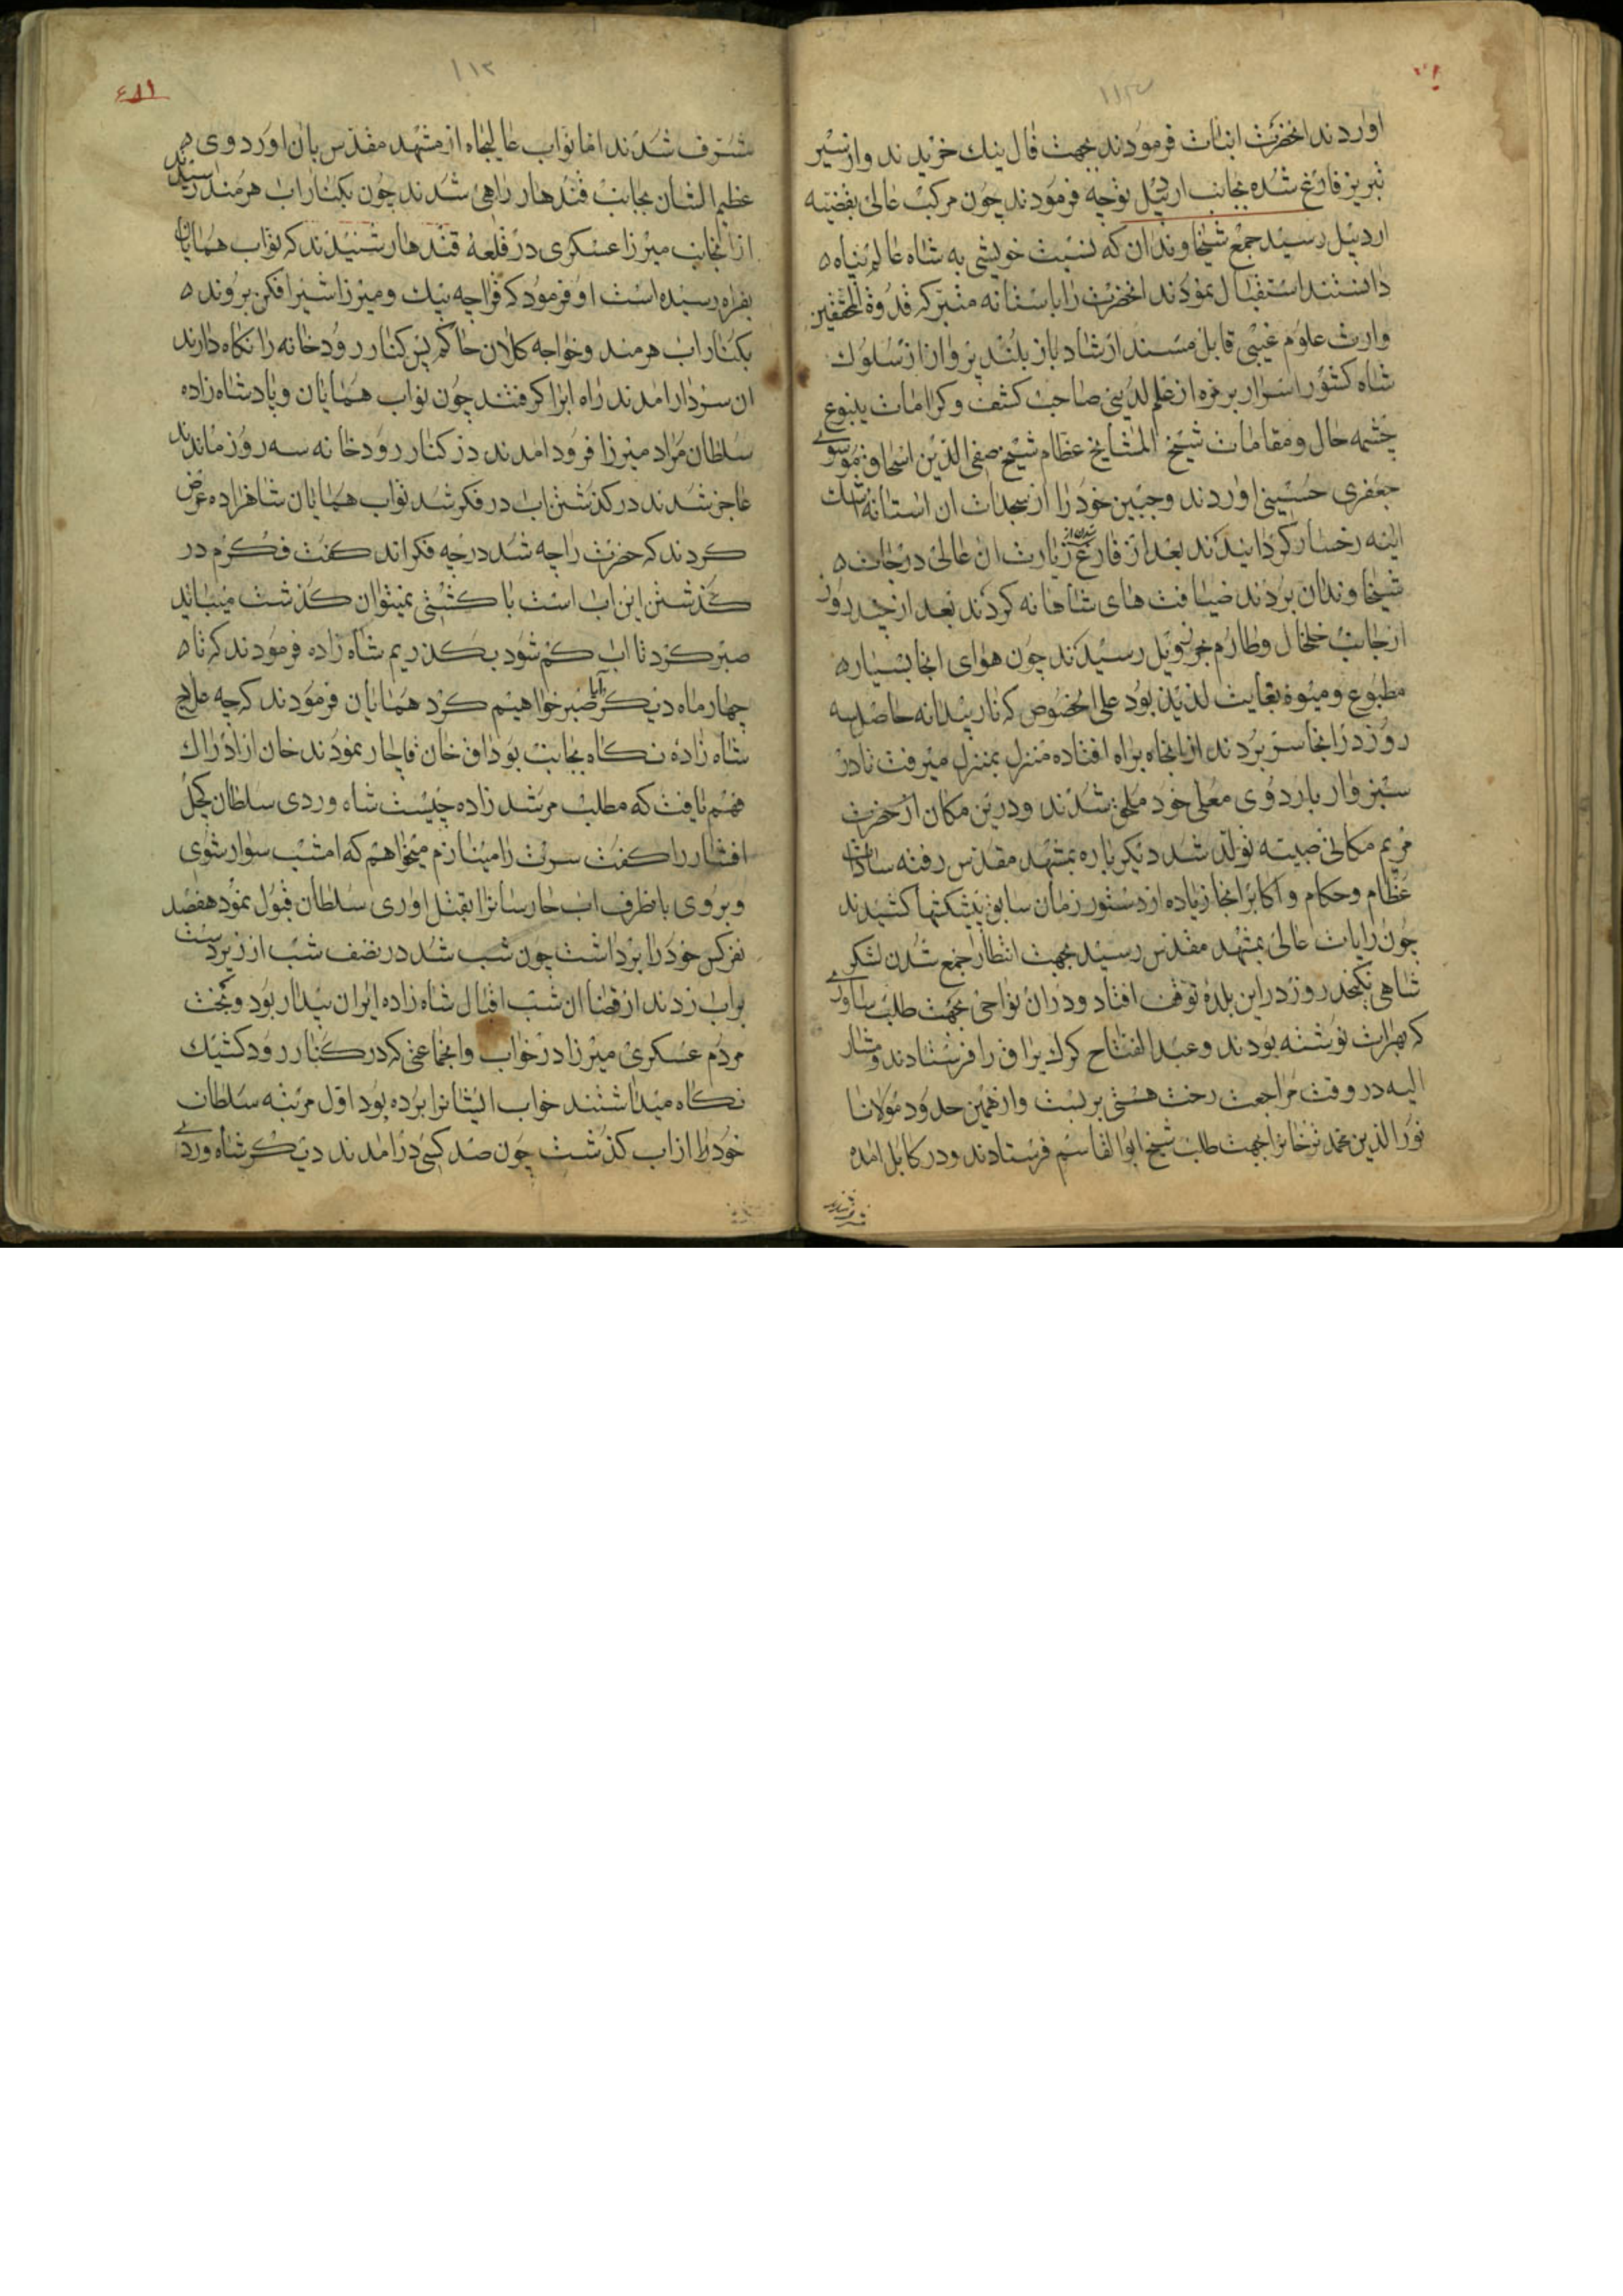 اوردند انحضرت اثبات فرمودند بجهت فال نیک خریدند و از سیر
تبریز فارغ شده بجانب اردبیل توجه فرمودند چون مرکب عالی بقضیه
اردبیل رسید جمع شیخاوندان که نسبت خویشی به شاه عالم پناه
دانستند استقبال نمودند انحضرت را باستانه متبرکه قدوة المحققین
وارث علوم غیبی قابل مسند ارشاد باز بلند پرواز از سلوک
شاه کشور اسرار بر از علم لدنی صاحب کشف و کرامات ینبوع
چشمه حال و مقامات شیخ المشایخ عظام شیخ صفی الدین اسحاق موسوی
جعفری حسینی اوردند و جبین خود را از سجدات ان استانه
اینه رخسار کردانیدند بعد از فارغ شدن از زیارت ان عالی درجات
شیخاوندان بردند ضیافت های شاهانه کردند بعد از چند روز
از جانب خلخال و طارم رسیدند چون هوای انجا بسیار
مطبوع و میوه بغایت لذیذ بود علی الخصوص که نار بیدانه حاصل سه
روز در انجا سر بردند از انجاه براه افتاده منزل بمنزل میرفت تا در
سبزوار باردوی معلی خود ملحق شدند و درین مکان از حضرت
مریم مکانی صبیه تولد شد دیکر باره بمشهد مقدس رفته سادات
عظام و حکام و اکابر انجا زیاده از دستور زمان سابق پیشکشها کشیدند
چون رایات عالی بمشهد مقدس رسید بجهت انتظار جمع شدن لشکر
شاهی یکچند روز در این بلده توقف افتاد و دران نواحی بجهت طلب
که بهرات نوشته بودند و عبد الفتاح کرک یراق را فرستادند و مشار
الیه در وقت مراجعت رخت هستی بر بست و از همین حدود مولانا
نور الدین محمد ترخانرا جهت طلب شیخ ابوالقاسم فرستادند و در کابل امده
۱۱۳
مشرف شدند اما نواب عالیجاه از مشهد مقدس بان اوردوی
عظیم الشان بجانب قندهار راهی شدند چون بکنار اب هرمند رسیدند
از انجانب میرزا عسکری در قلعه قندهار شنیدند که نواب همایان
بفراه رسیده است او فرمود که قراچه بیک و میرزا شیرافکن بروند
بکنار اب هرمند و خواجه کلان حاکم پس کنار رودخانه را نکاه دارند
ان سردار امدند راه ابرا کرفتند چون نواب همایان و پادشاه زاده
سلطان مراد میرزا فرود امدند در کنار رودخانه سه روز ماندند
عاجز شدند در کذشتن اب در فکر شد نواب همایان شاهزاده عرض
کردند که حضرت را چه شد در چه فکراند کفت فکرم در
کذشتن این اب است با کشتی نمیتوان کذشت میباید
صبر کرد تا اب کم شود بکذریم شاه زاده فرمودند که تا
چهار ماه دیکر ایا صبر خواهیم کرد همایان فرمودند که چه علاج
شاه زاده نکاه بجانب بوداق خان قاجار نمودند خان از ادراک
فهم یافت که مطلب مرشد زاده چیست شاه وردی سلطان کچل
افشار را کفت سرت را مینازم میخواهم که امشب سوار شوی
و بروی بانطرف اب حارسانرا بقتل اوری سلطان قبول نمود هفصد
نفر کس خود را برداشت چون شب شد در نصف شب از زبردست
براب زدند از قضا ان شب اقبال شاه زاده ایران بیدار بود و بخت
مردم عسکری میرزا در خواب و انجماعتی که در کنار رود کشیک
نکاه میداشتند خواب ایشانرا برده بود اول مرتبه سلطان
خود را از اب کذشت چون صد کسی در امدند دیکر شاه وردی